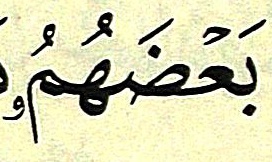 بَعۡضَهُمُ